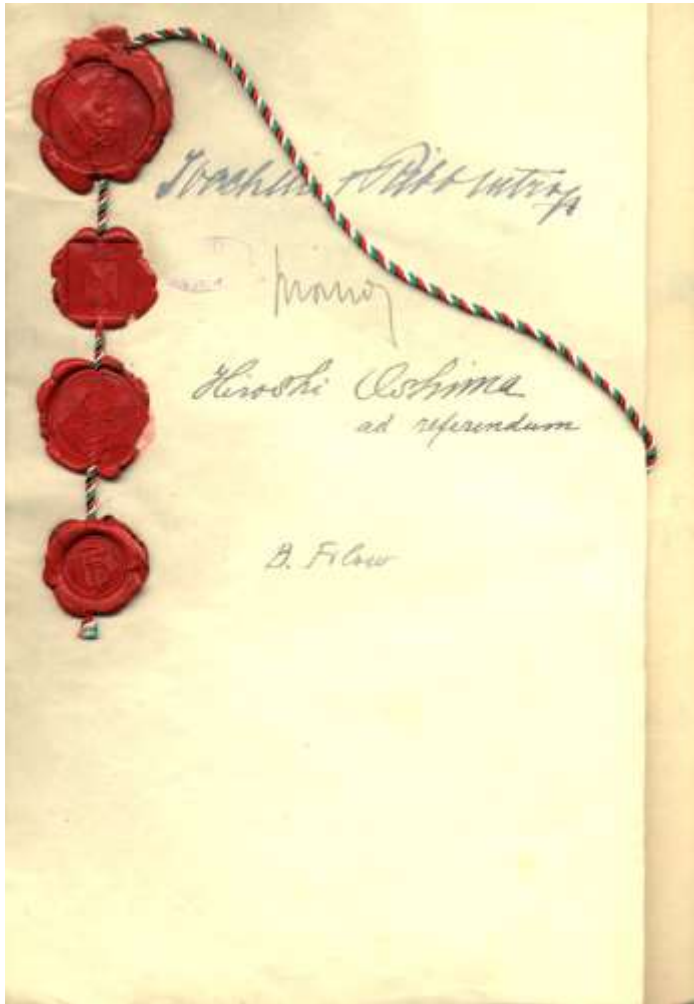 Joachim v Ribbentrop
Ciano
Hiroshi Oshima
ad referendum
B. Filow